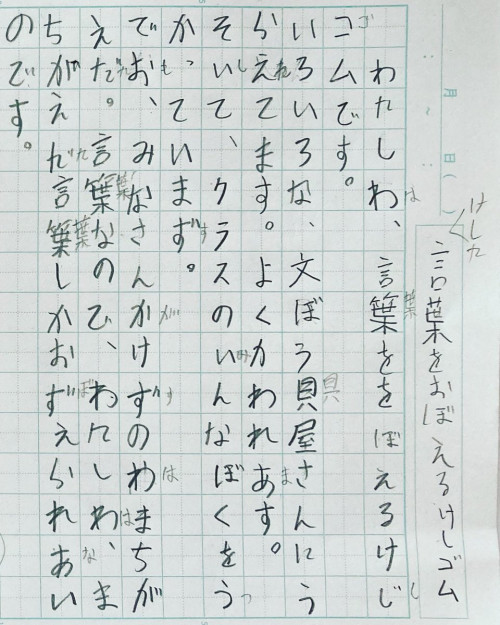 月 日( )
けした
言葉をおぼえるけしゴム
わたしわ、言葉をを ぼえるけじ
は 葉 し
コムです。
ゴ
いろいろな、文ぼう貝屋さんにう
具
らえてます。よくかわれあす。
れ ま
そいて、クラスのいんなぼくをう
し み つ
かっていまず。
す
でお、みなさんかけずのわまちが
も が す は
えだ。言葉なので、わたしわ、ま
葉 は
ちがえだ言葉しかおずえられあい
た 葉 ぼ な
のです。